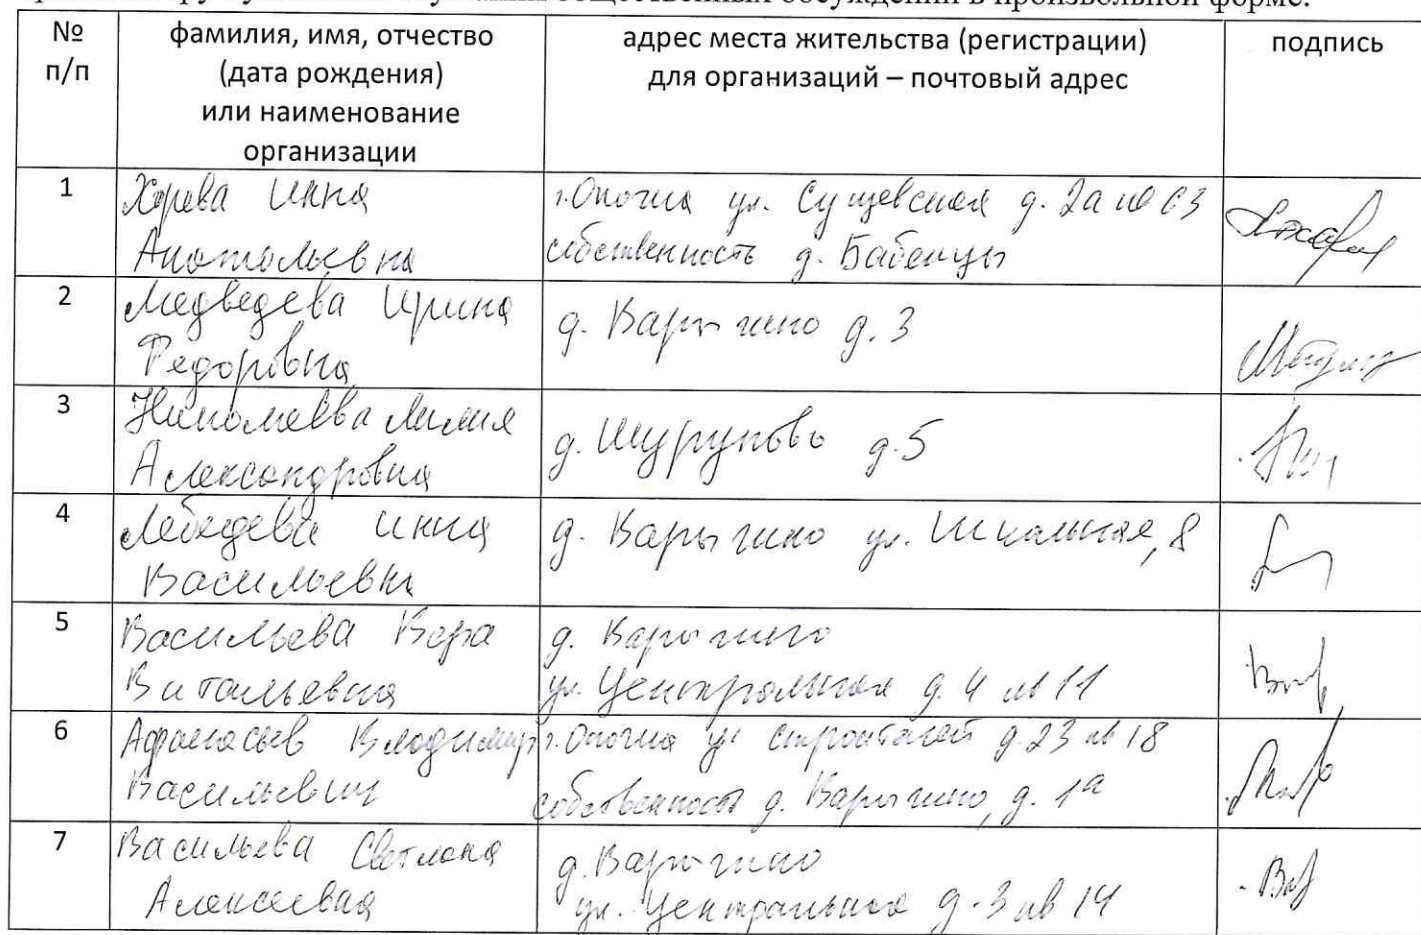 общественных обсуждений в произвольной форме.
№ п/п
фамилия, имя, отчество
(дата рождения)
или наименование
организации
адрес места жительства (регистрации)
для организаций – почтовый адрес
подпись
1
Инна
Анатольевна
г. Опочка ул. Сущевская д. 2а кв 63
собственность д. Бабенцы
2
Медведева Ирина
Федоровна
д. Варыгино д. 3
3
Николаева Лилия
Александровна
д. Шурупово д. 5
4
Лебедева Инна
Васильевна
д. Варыгино ул. Школьная, 8
5
Васильева Вера
Витальевна
д. Варыгино
ул. Центральная д. 4 кв 11
6
Афанасьев Владимир
Васильевич
г. Опочка ул Строителей д. 23 кв 18
собственность д. Варыгино, д. 1а
7
Васильева Светлана
Алексеевна
д. Варыгино
ул. Центральная д. 3 кв 14